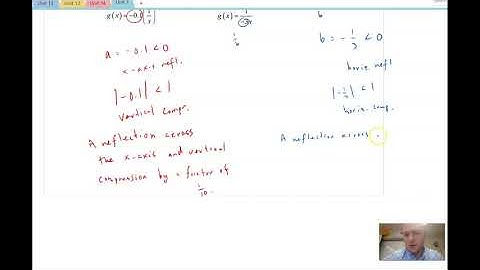 Unit 11 Unit 12
g(x) = -0.1(1/x)
a = -0.1 < 0
x-axis refl.
|-0.1| < 1
vertical comp.
A reflection across
the x-axis and vertical
compression by a factor of
1/10.
g(x) =
1/b
b
b = -1/2 < 0
horiz refl
|-1/2| < 1
horiz. comp.
A reflection across